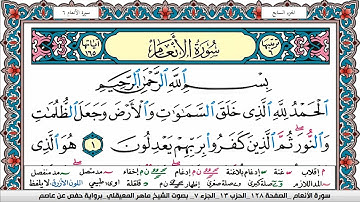 الجزء السابع
سورة الأنعام ٦
سُورَةُ الأَنْعَامِ
بِسْمِ اللَّهِ الرَّحْمَٰنِ الرَّحِيمِ
الْحَمْدُ لِلَّهِ الَّذِي خَلَقَ السَّمَاوَاتِ وَالْأَرْضَ وَجَعَلَ الظُّلُمَاتِ
وَالنُّورَ ثُمَّ الَّذِينَ كَفَرُوا بِرَبِّهِمْ يَعْدِلُونَ ١ هُوَ الَّذِي
سورة الأنعام الصفحة ١٢٨ الحزب ١٣ الجزء ٧ بصوت الشيخ ماهر المعيقلي برواية حفص عن عاصم